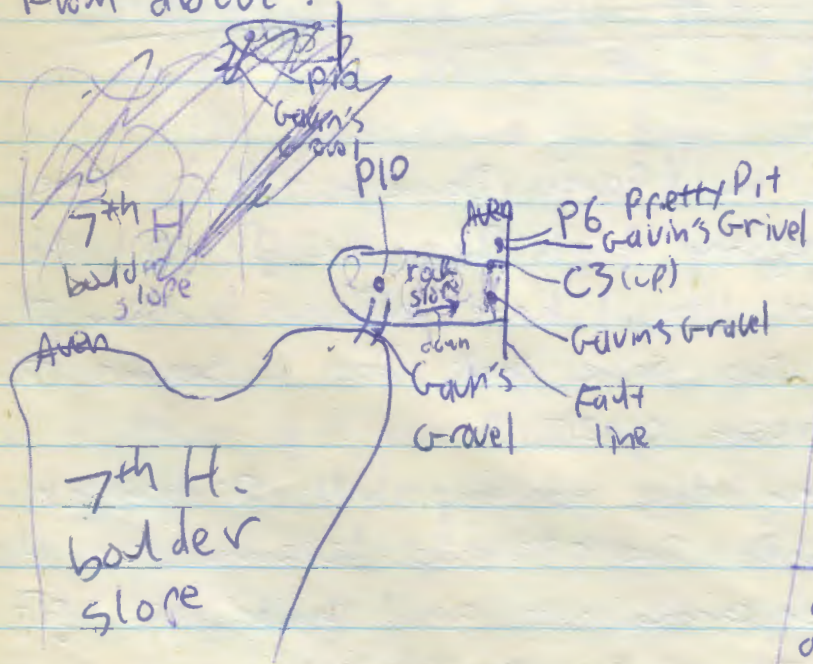 From above:
P10
Gavin's
Gravel
7th H
boulder
slope
P10
Aven
P6 Pretty Pit
Gavin's Grivel
C3 (up)
rock
slope
down
Gavin's Gravel
Gavin's
Gravel
Fault
line
Aven
7th H.
boulder
slope